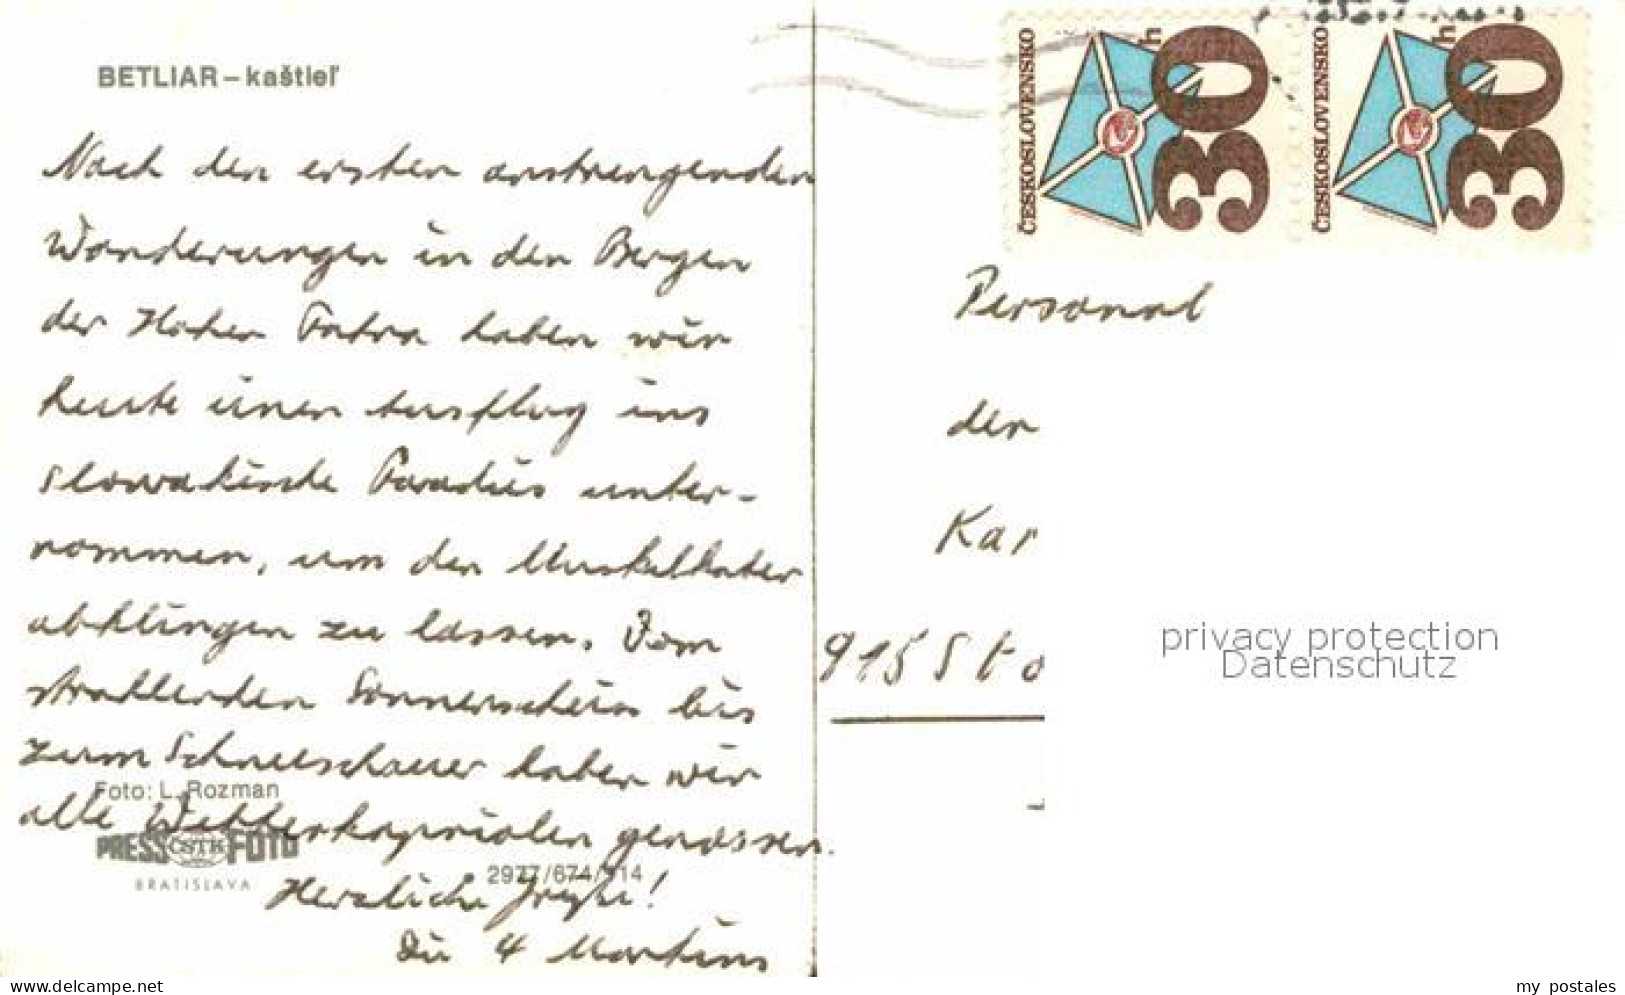 BETLIAR – kaštieľ
Nach den ersten anstrengenden
Wanderungen in den Bergen
der Hohen Tatra haben wir
heute einen Ausflug ins
slowakische Paradies unter-
nommen, um den Muskelkater
abklingen zu lassen. Vom
strahlenden Sonnenschein bis
zum Schneeschauer haben wir
Foto: L. Rozman
alle Wetterkapriolen genossen.
PRESS ČSTK FOTO
BRATISLAVA
2977/674/714
Herzliche Grüße!
Die 4 Martins
ČESKOSLOVENSKO 30 h
ČESKOSLOVENSKO 30 h
Personal
der
Kar
915 Sto
privacy protection
Datenschutz
www.delcampe.net
my_postales